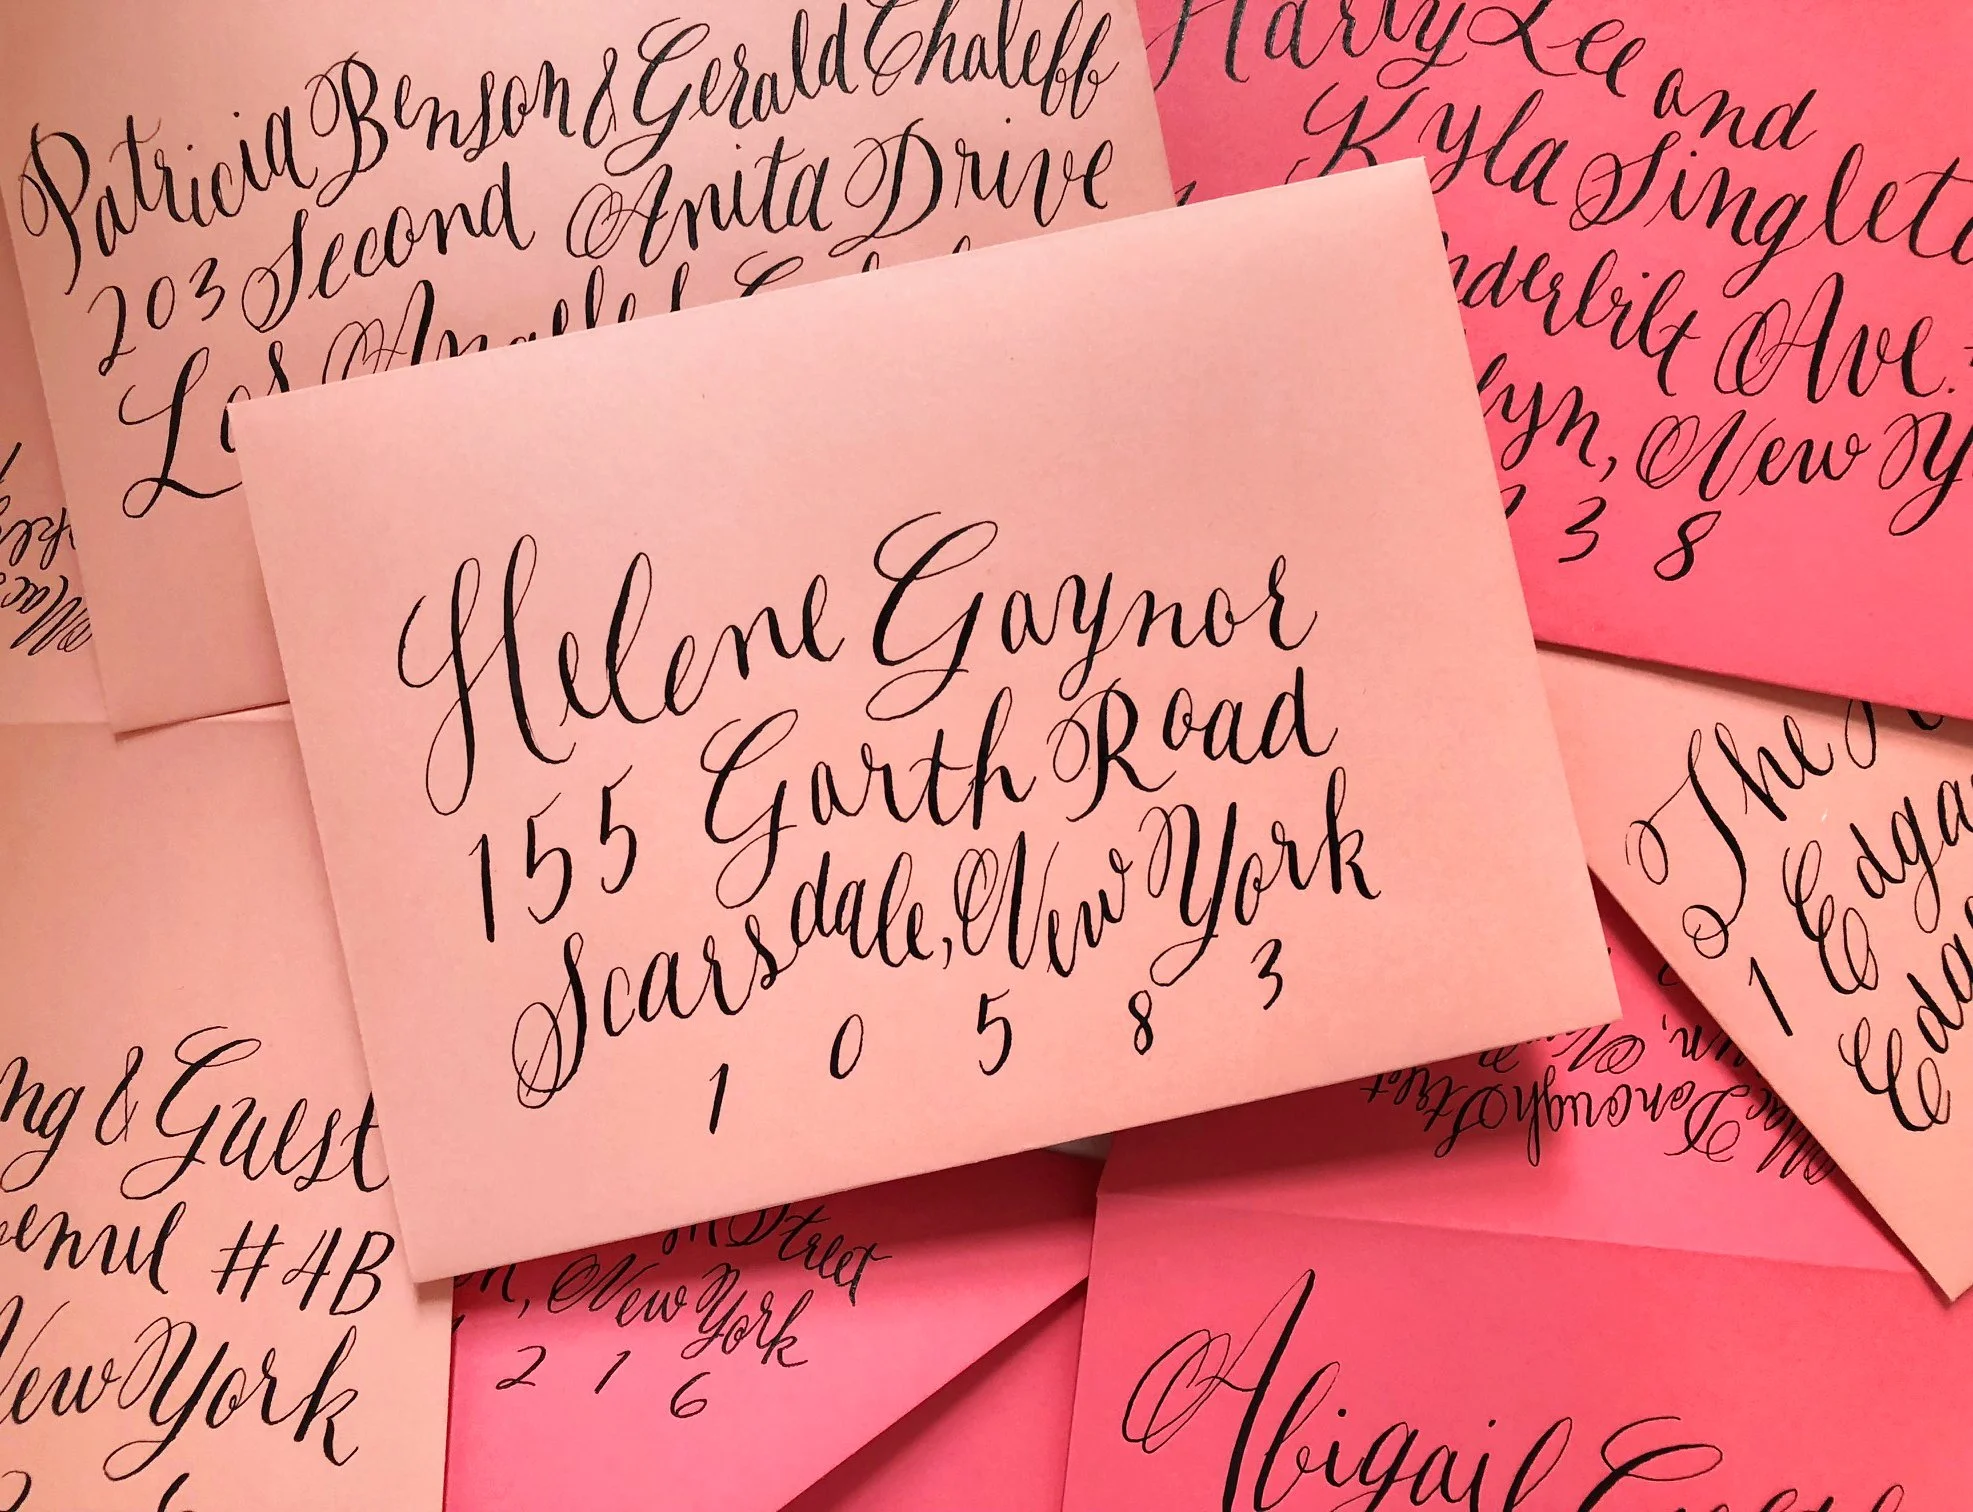 Patricia Benson & Gerald Chaleff
203 Second Anita Drive
Los Angeles
Harry Lee and
Kyla Singleto
nderbilt Ave.
lyn, New Y
3 8
Helene Gaynor
155 Garth Road
Scarsdale, New York
1 0 5 8 3
The
1 Edga
Eda
ng & Guest
venue #4B
New York
Street
n, New York
2 1 6
MacDonough Street
Abigail